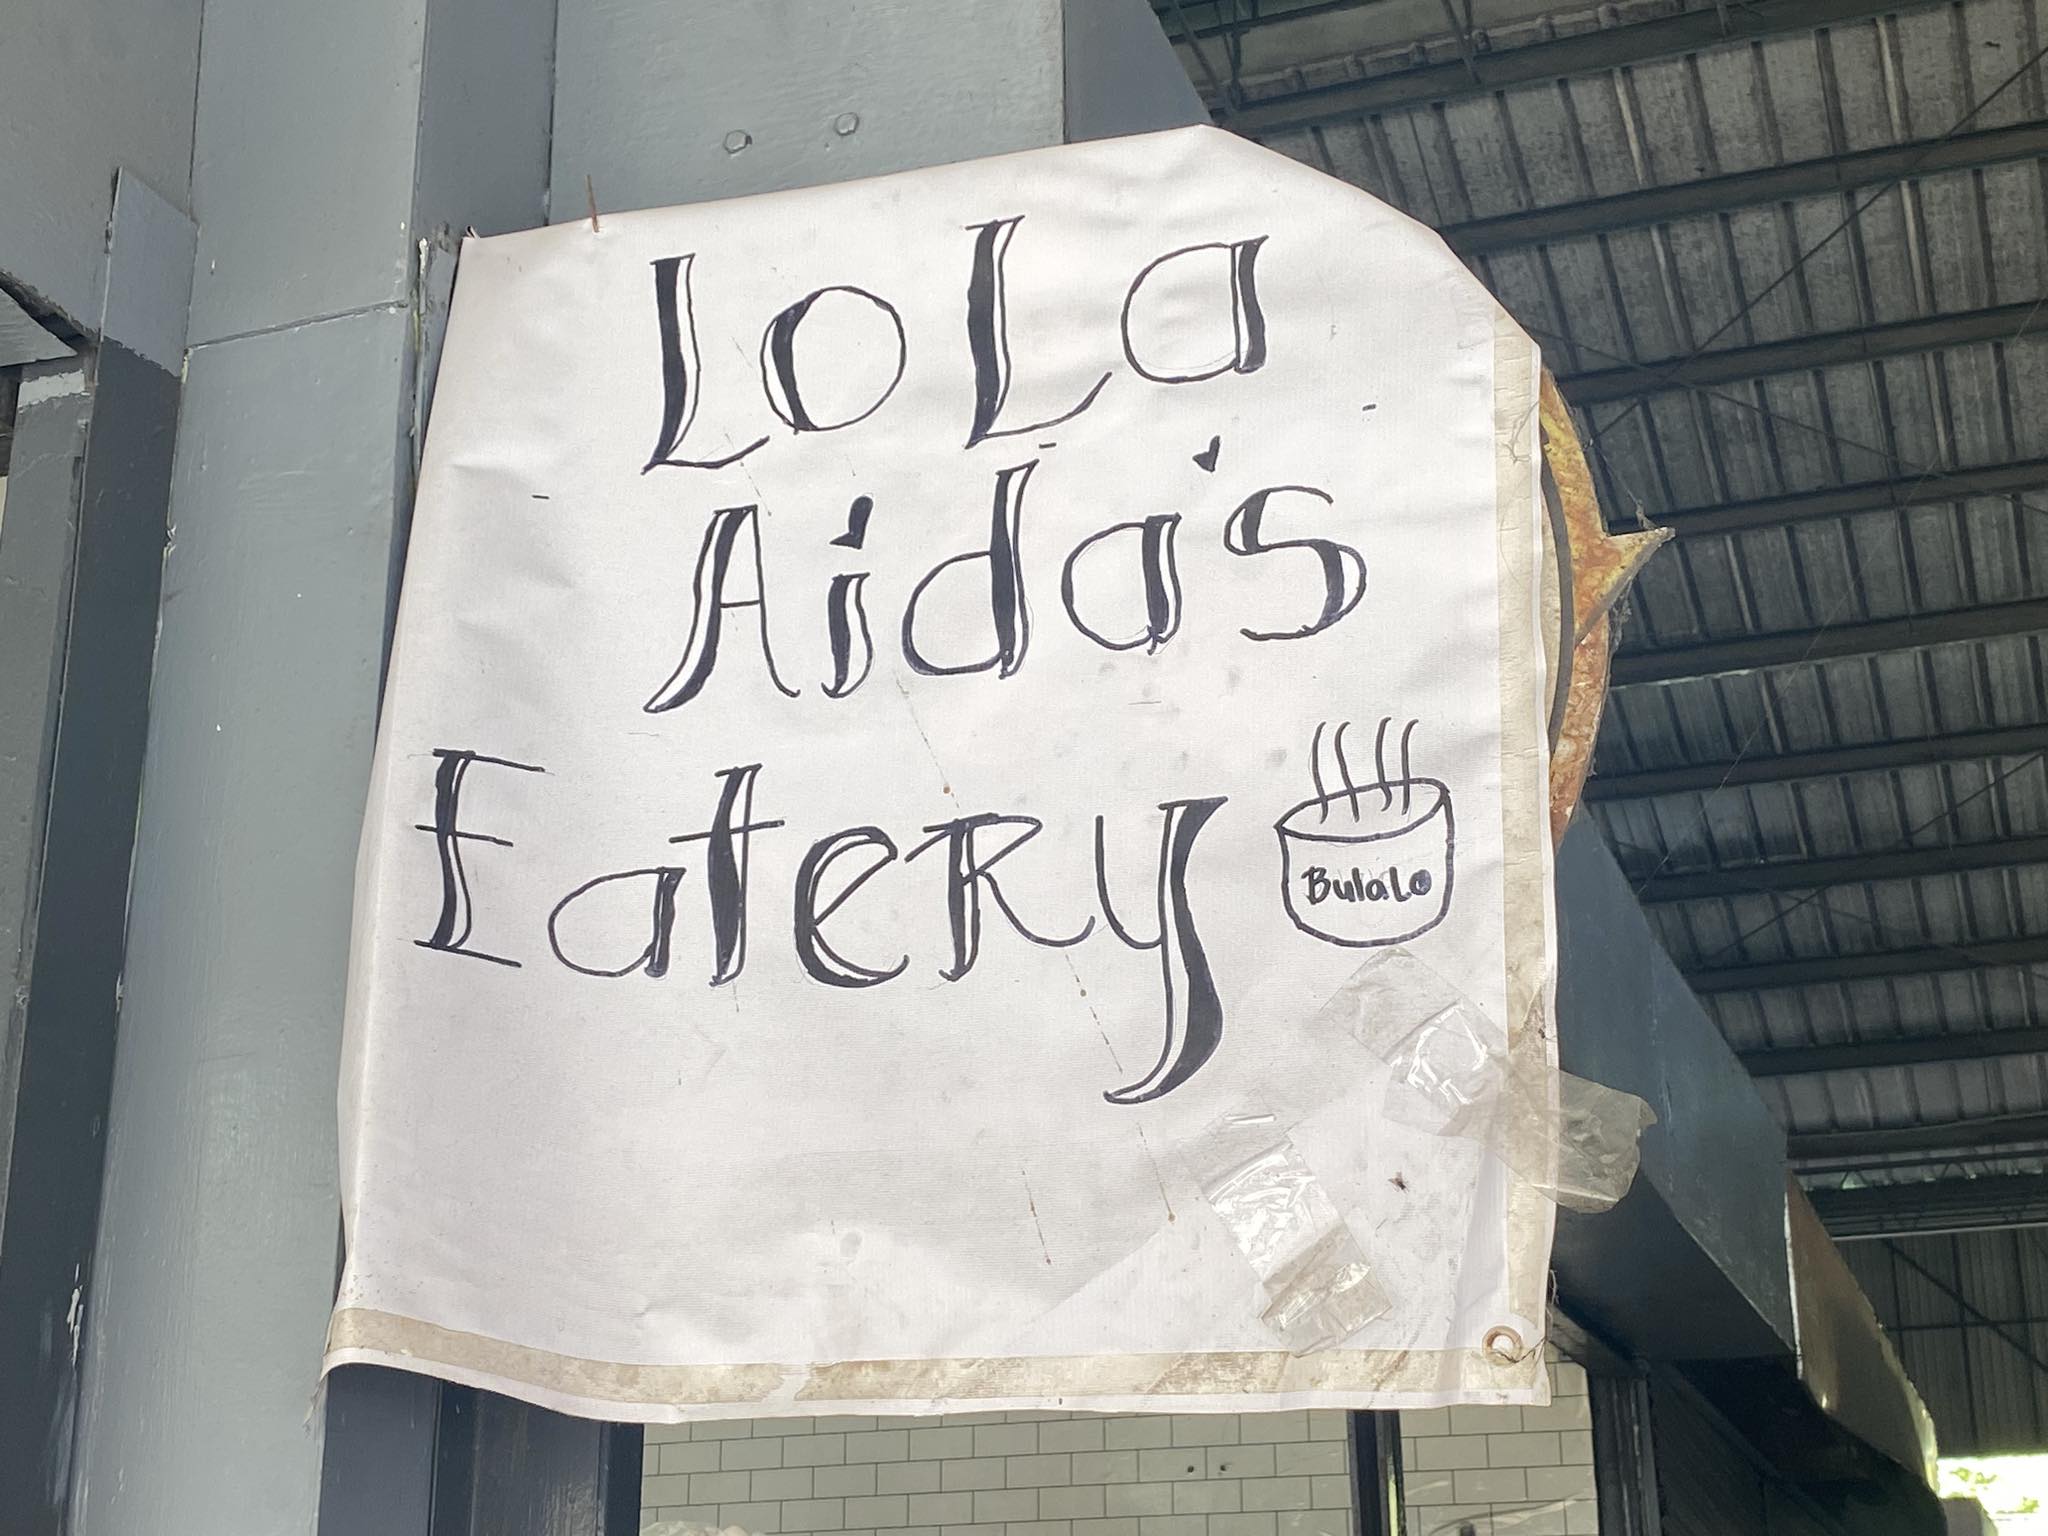 LoLa
Aida's
EateRy
BulaLo